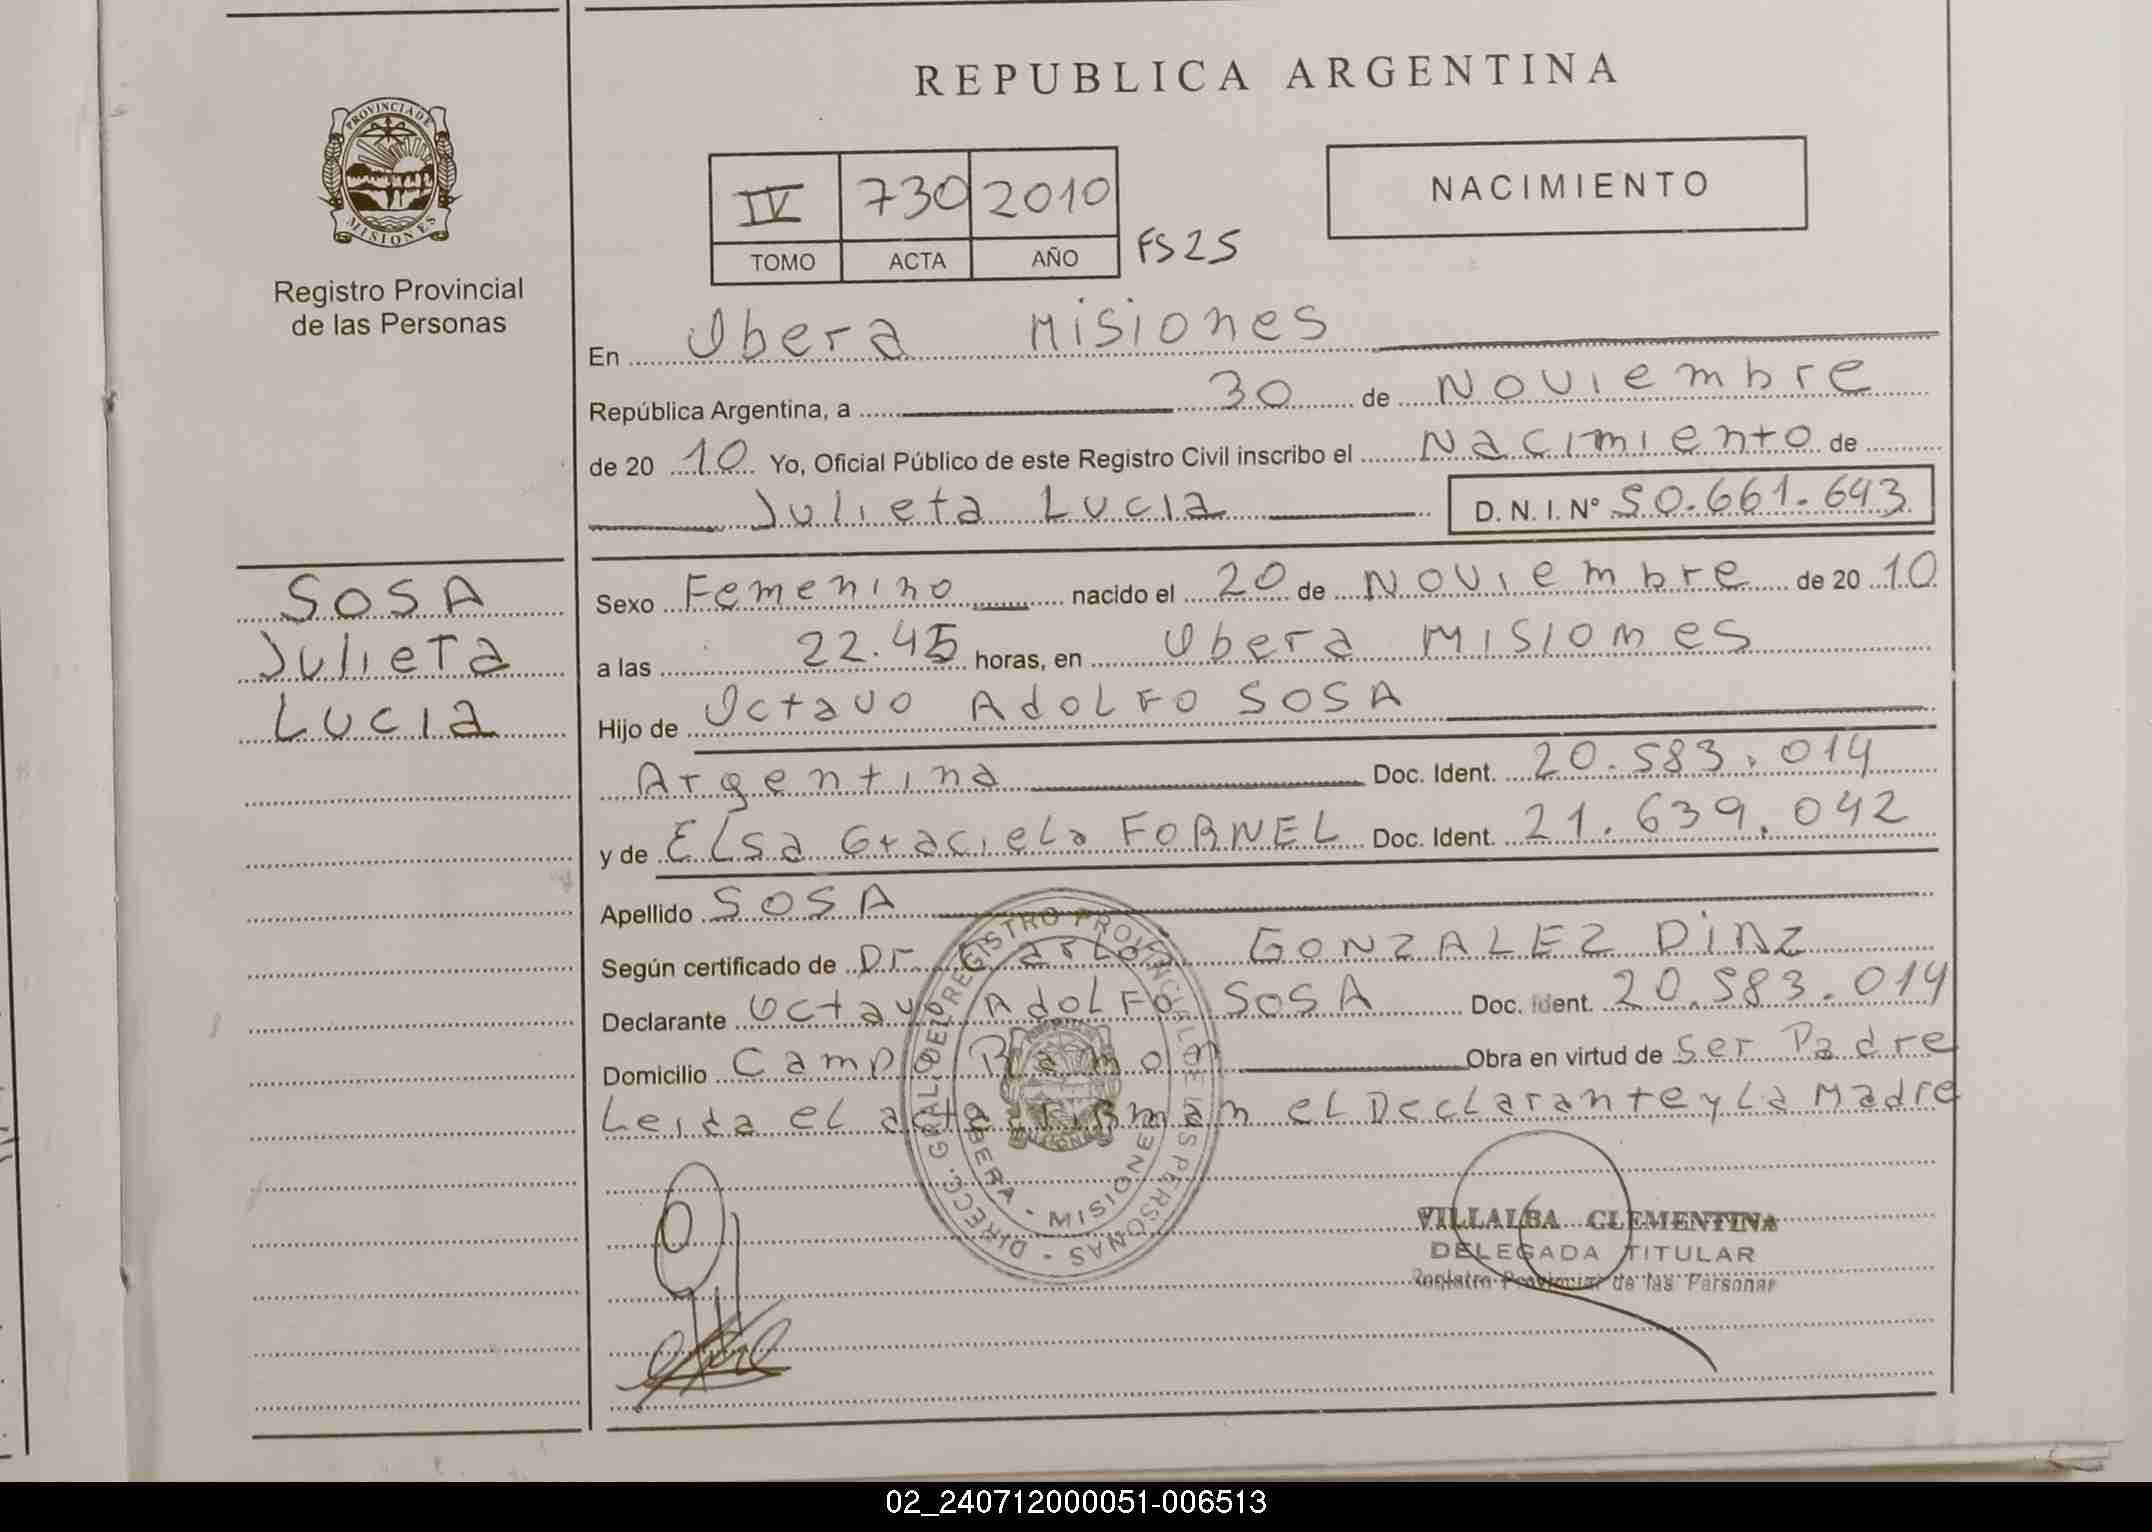 REPUBLICA ARGENTINA
PROVINCIA DE
MISIONES
Registro Provincial
de las Personas
IV 730 2010
TOMO ACTA AÑO
FS 25
NACIMIENTO
En Obera Misiones
República Argentina, a 30 de Noviembre
de 20 10 Yo, Oficial Público de este Registro Civil inscribo el Nacimiento de
Julieta Lucia D. N. I. Nº 50.661.643
SOSA
Julieta
Lucia
Sexo Femenino nacido el 20 de Noviembre de 20 10
a las 22.45 horas, en Obera Misiones
Hijo de Octavo Adolfo SOSA
Argentina Doc. Ident. 20.583.014
y de Elsa Graciela FORNEL Doc. Ident. 21.639.042
Apellido SOSA
Según certificado de Dr. Carlos GONZALEZ DIAZ
Declarante Octavo Adolfo SOSA Doc. Ident. 20.583.014
Domicilio Campo Ramon Obra en virtud de Ser Padre
Leida el acta Firman el Declarante y La Madre
DIRECC. GRAL. DEL REGISTRO PROVINCIAL DE LAS PERSONAS
OBERA - MISIONES
VILLALBA CLEMENTINA
DELEGADA TITULAR
Registro Provincial de las Personas
02_240712000051-006513